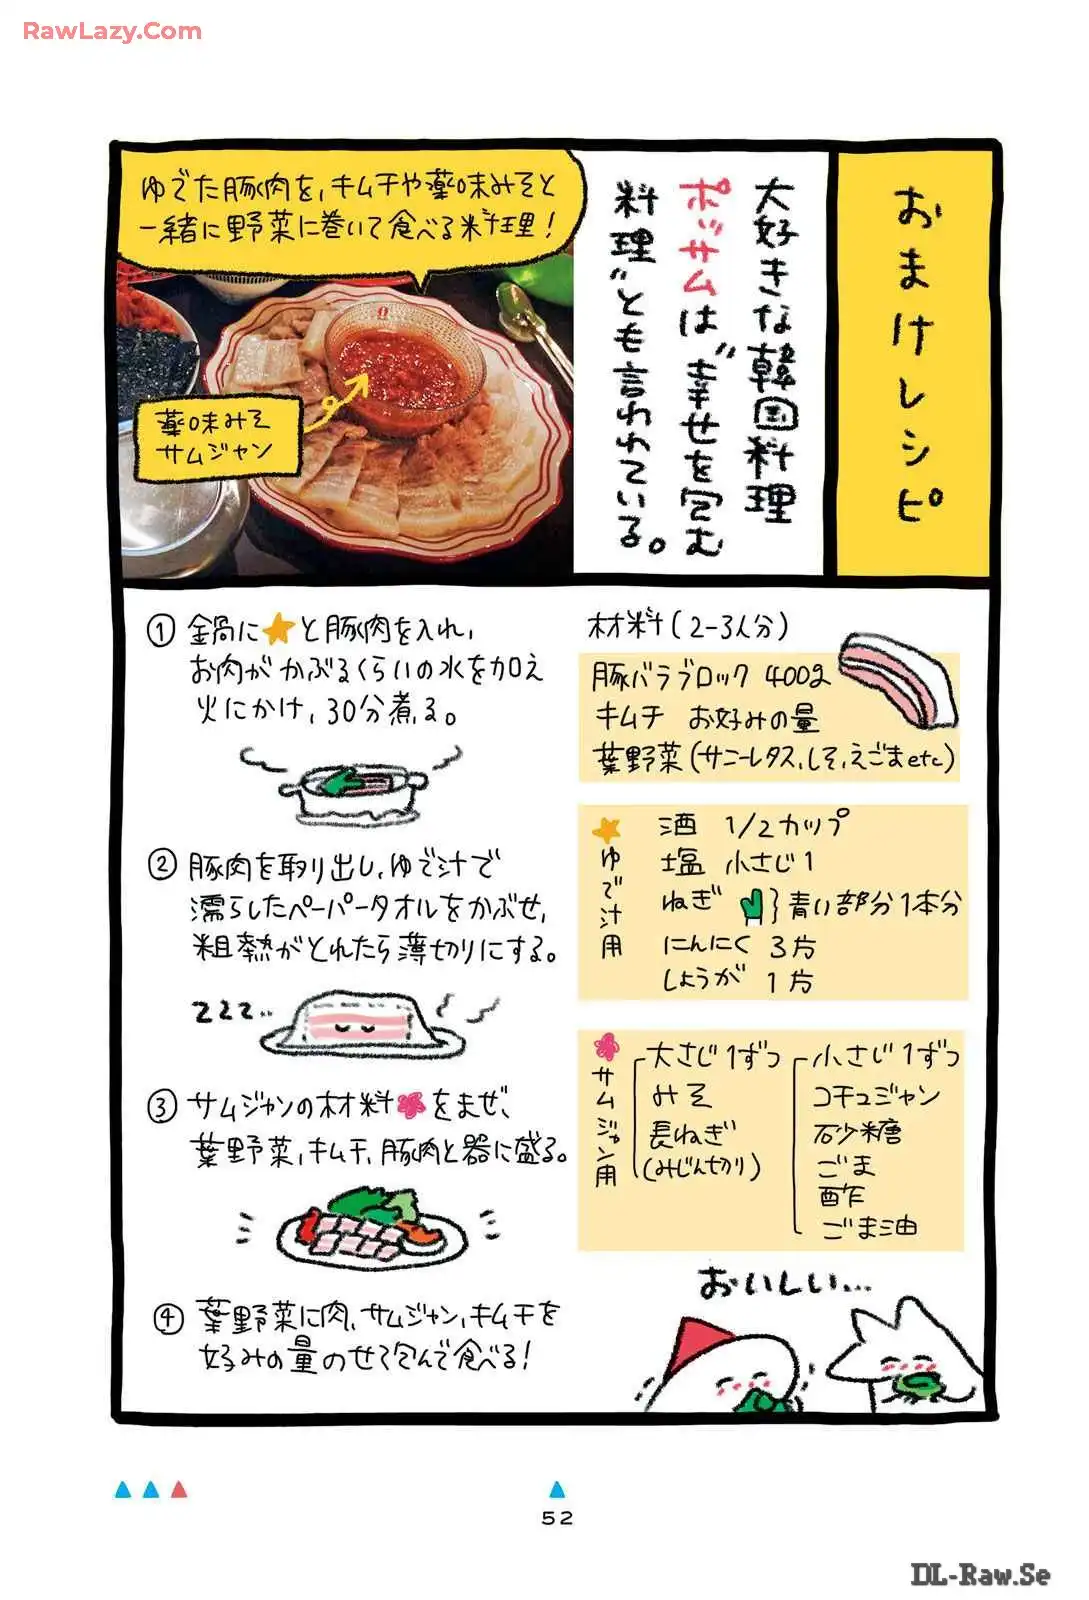 RawLazy.Com
おまけレシピ
大好きな韓国料理
ポッサムは“幸せを包む
料理”とも言われている。
ゆでた豚肉を、キムチや薬味みそと
一緒に野菜に巻いて食べる料理！
薬味みそ
サムジャン
① 鍋に★と豚肉を入れ、
お肉がかぶるくらいの水を加え
火にかけ、30分煮る。
② 豚肉を取り出し、ゆで汁で
濡らしたペーパータオルをかぶせ、
粗熱がとれたら薄切りにする。
ZZZ..
③ サムジャンの材料をまぜ、
葉野菜、キムチ、豚肉と器に盛る。
④ 葉野菜に肉、サムジャン、キムチを
好みの量のせて包んで食べる！
材料(2-3人分)
豚バラブロック 400g
キムチ お好みの量
葉野菜(サニーレタス、しそ、えごまetc)
★ゆで汁用
酒 1/2カップ
塩 小さじ1
ねぎ }青い部分1本分
にんにく 3片
しょうが 1片
サムジャン用
大さじ1ずつ
みそ
長ねぎ
(みじん切り)
小さじ1ずつ
コチュジャン
砂糖
ごま
酢
ごま油
おいしい...
52
DL-Raw.Se